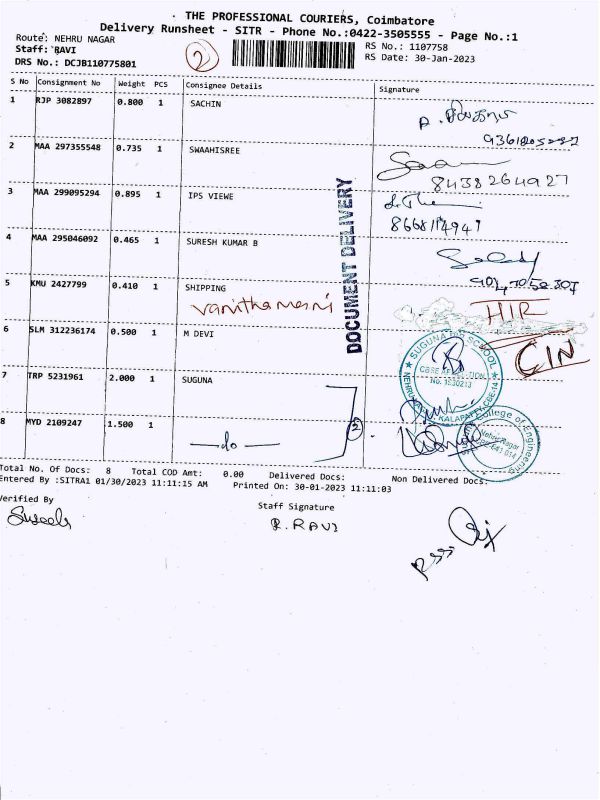 THE PROFESSIONAL COURIERS, Coimbatore
Delivery Runsheet - SITR - Phone No.:0422-3505555 - Page No.:1
Route: NEHRU NAGAR
RS No.: 1107758
Staff: RAVI
2
RS Date: 30-Jan-2023
DRS No.: DCJB110775801
S No Consignment No Weight PCS Consignee Details Signature
1 RJP 3082897 0.800 1 SACHIN
2 MAA 297355548 0.735 1 SWAAHISREE
8438264927
3 MAA 299095294 0.895 1 IPS VIEWE
4 MAA 295046092 0.465 1 SURESH KUMAR B
5 KMU 2427799 0.410 1 SHIPPING
vanithamani
HIR
6 SLM 312236174 0.500 1 M DEVI
CIN
7 TRP 5231961 2.000 1 SUGUNA
8 MYD 2109247 1.500 1
-do-
2
DOCUMENT DELIVERY
SUGUNA PIP SCHOOL
No. 1930213
KALAPATTY, CBE-14
College of Engineering
Nehru Nagar
641 014
Total No. Of Docs: 8 Total COD Amt: 0.00 Delivered Docs: Non Delivered Docs:
Entered By :SITRA1 01/30/2023 11:11:15 AM Printed On: 30-01-2023 11:11:03
Verified By
Staff Signature
R. RAVI